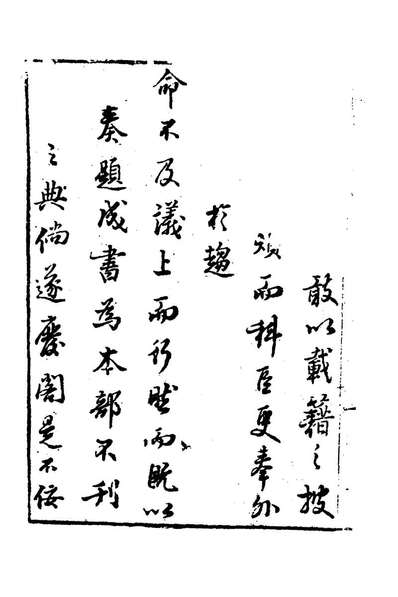 敢以載籍之披
而科臣更奉外
於趨
命不及議上而行然而既以
奏題成書為本部不刊
之典倘遂廢閣是不佞